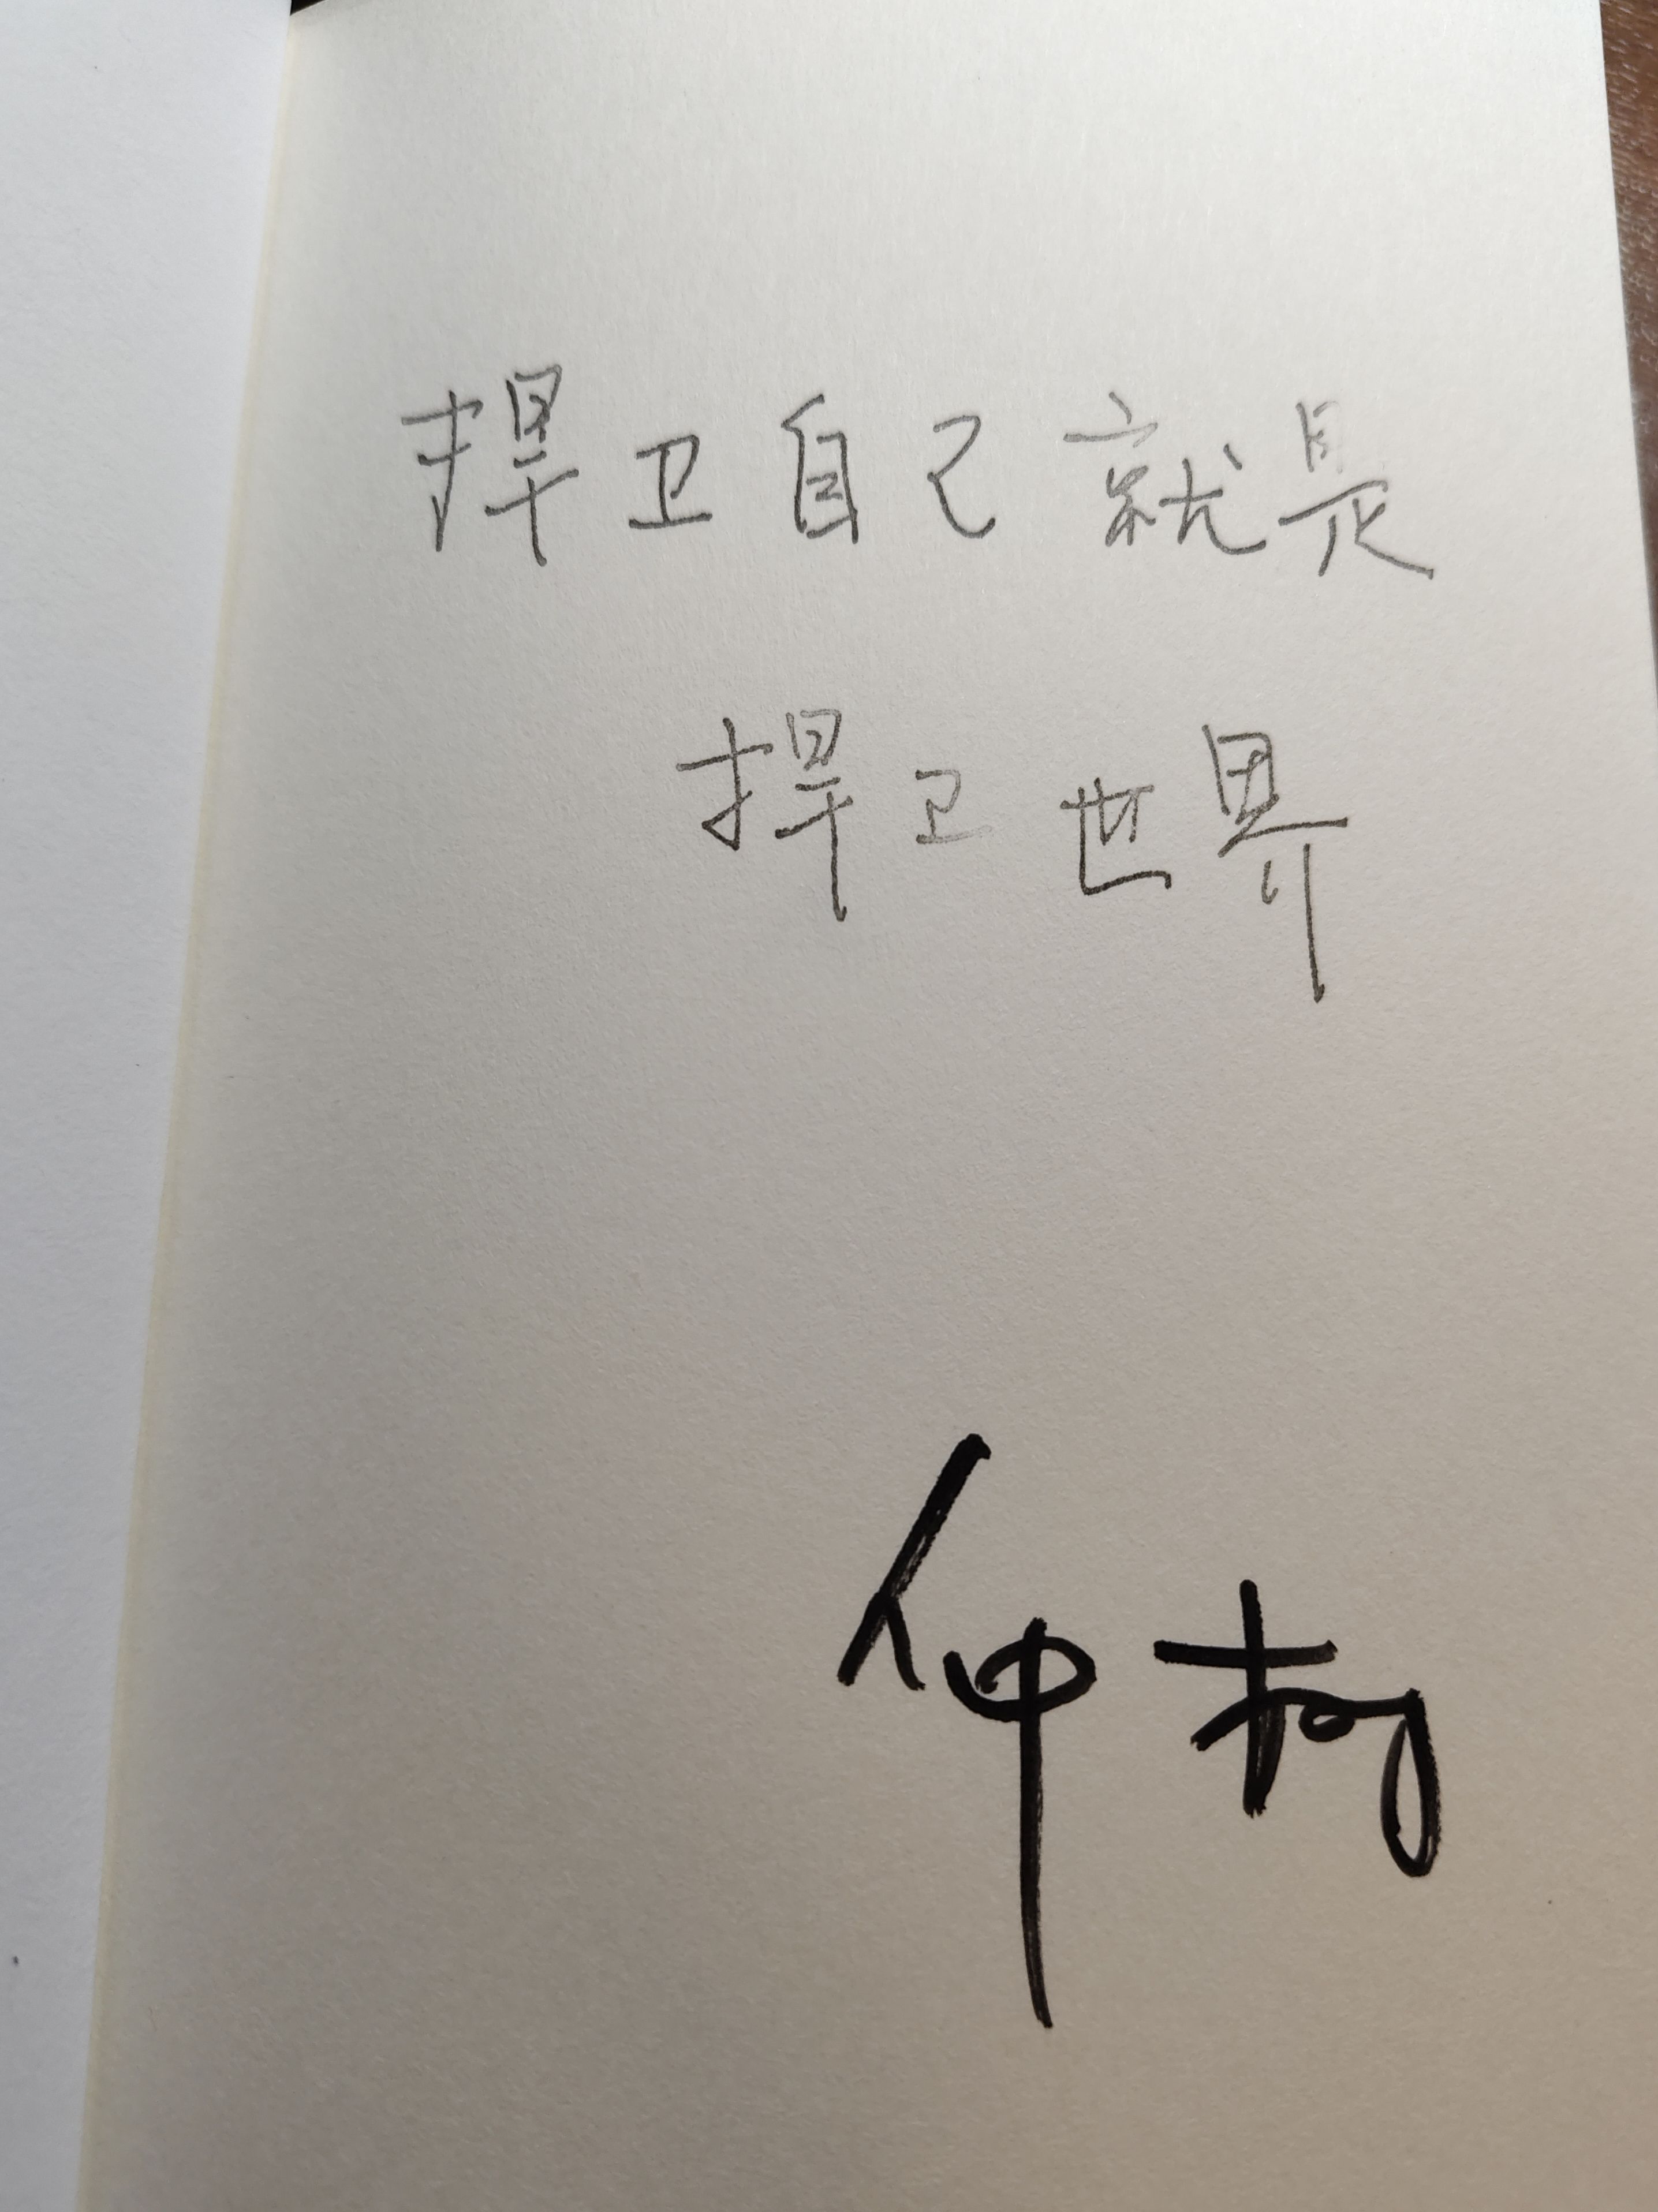 捍卫自己就是
捍卫世界
仲树